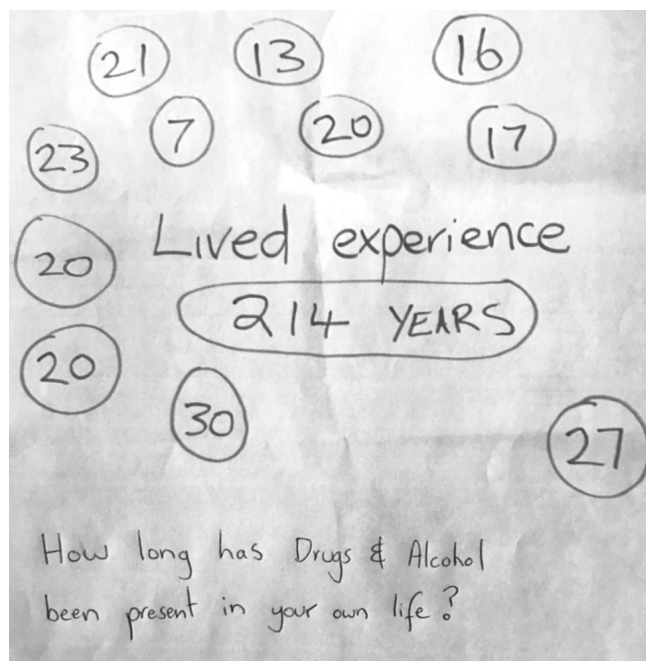 21 13 16
7 20 17
23
Lived experience
20
214 YEARS
20
30
27
How long has Drugs & Alcohol
been present in your own life?